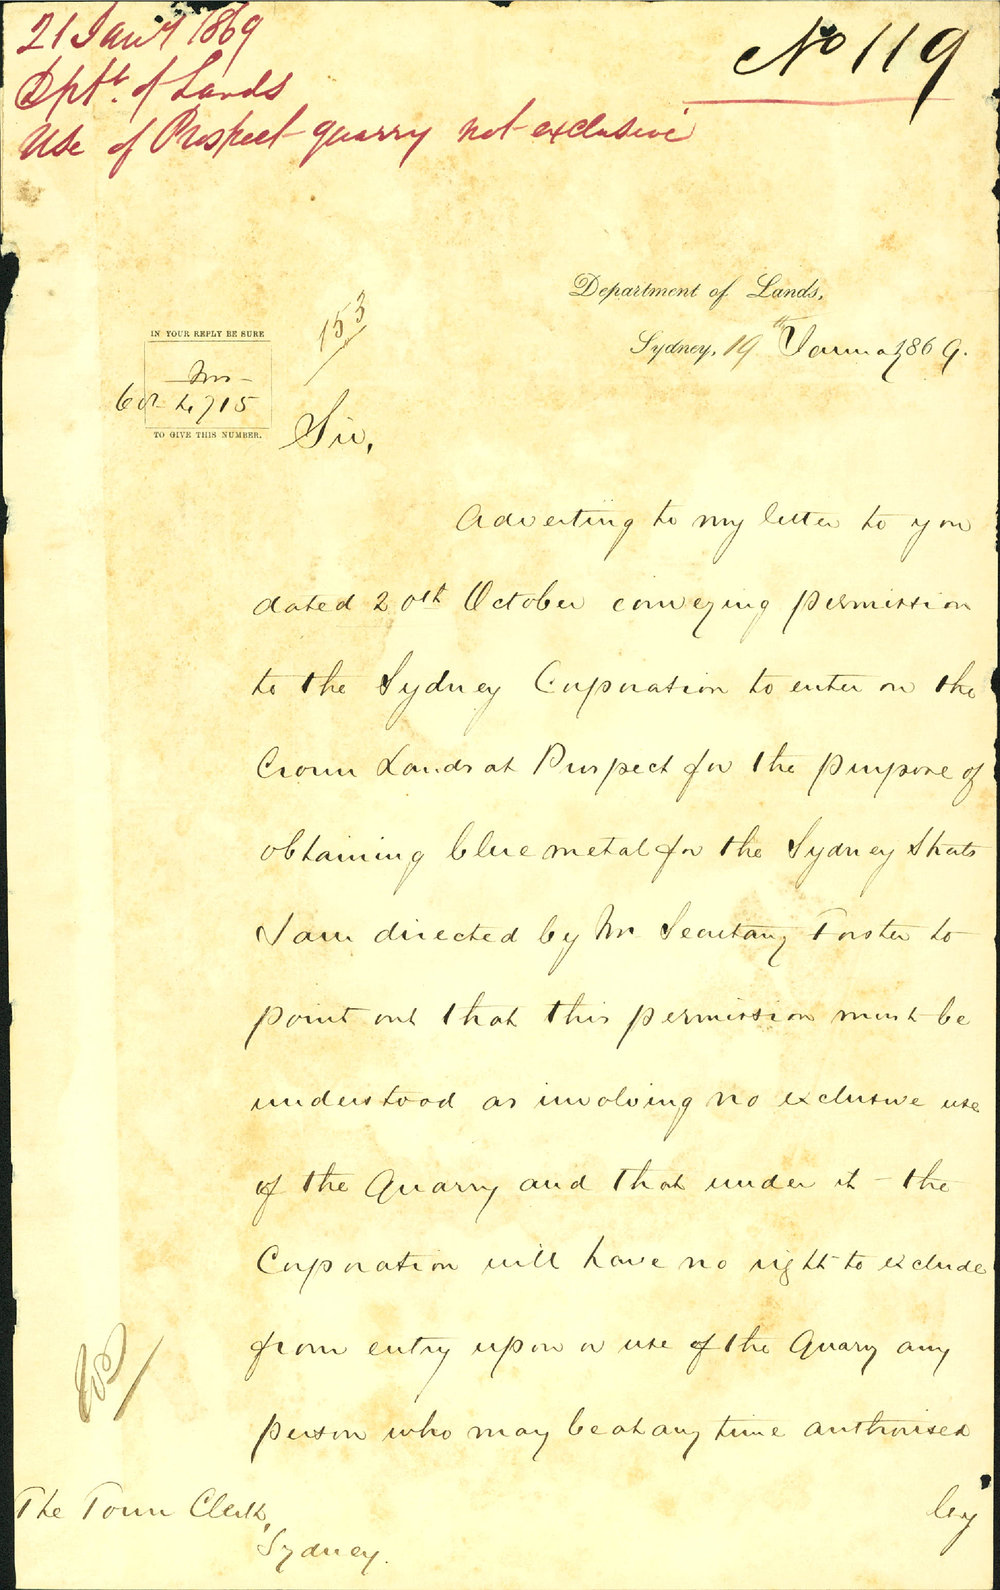 21 Jany 1869
Dptt. of Lands
Use of Prospect quarry not exclusive
No 119
Department of Lands,
Sydney, 19th January 1869.
153
IN YOUR REPLY BE SURE
TO GIVE THIS NUMBER.
Sir,
Adverting to my letter to you
dated 20th October conveying permission
to the Sydney Corporation to enter on the
Crown Lands at Prospect for the purpose of
obtaining blue metal for the Sydney Streets
I am directed by Mr Secretary Forster to
point out that this permission must be
understood as involving no exclusive use
of the Quarry and that under it - the
Corporation will have no right to exclude
from entry upon or use of the Quarry any
person who may be at any time authorised
by
The Town Clerk,
Sydney.